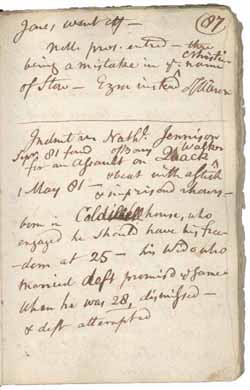 (87)
Jones went off —
nolle pros. entred — there
being a mistake in ye. Christin
name
of Stow — Ezra instead of Aaron
Indictmt. vs Nathl. Jennison
Sepr. 81 found for an assault on Quack Walker
1 May 81 — & beat with a stick
& imprisond 2 hours —
born in Coldwell house, who
engaged he should have his free-
dom at 25 — his Widow who
married Deft promisd ye same
When he was 28, dismissed —
& deft attempted